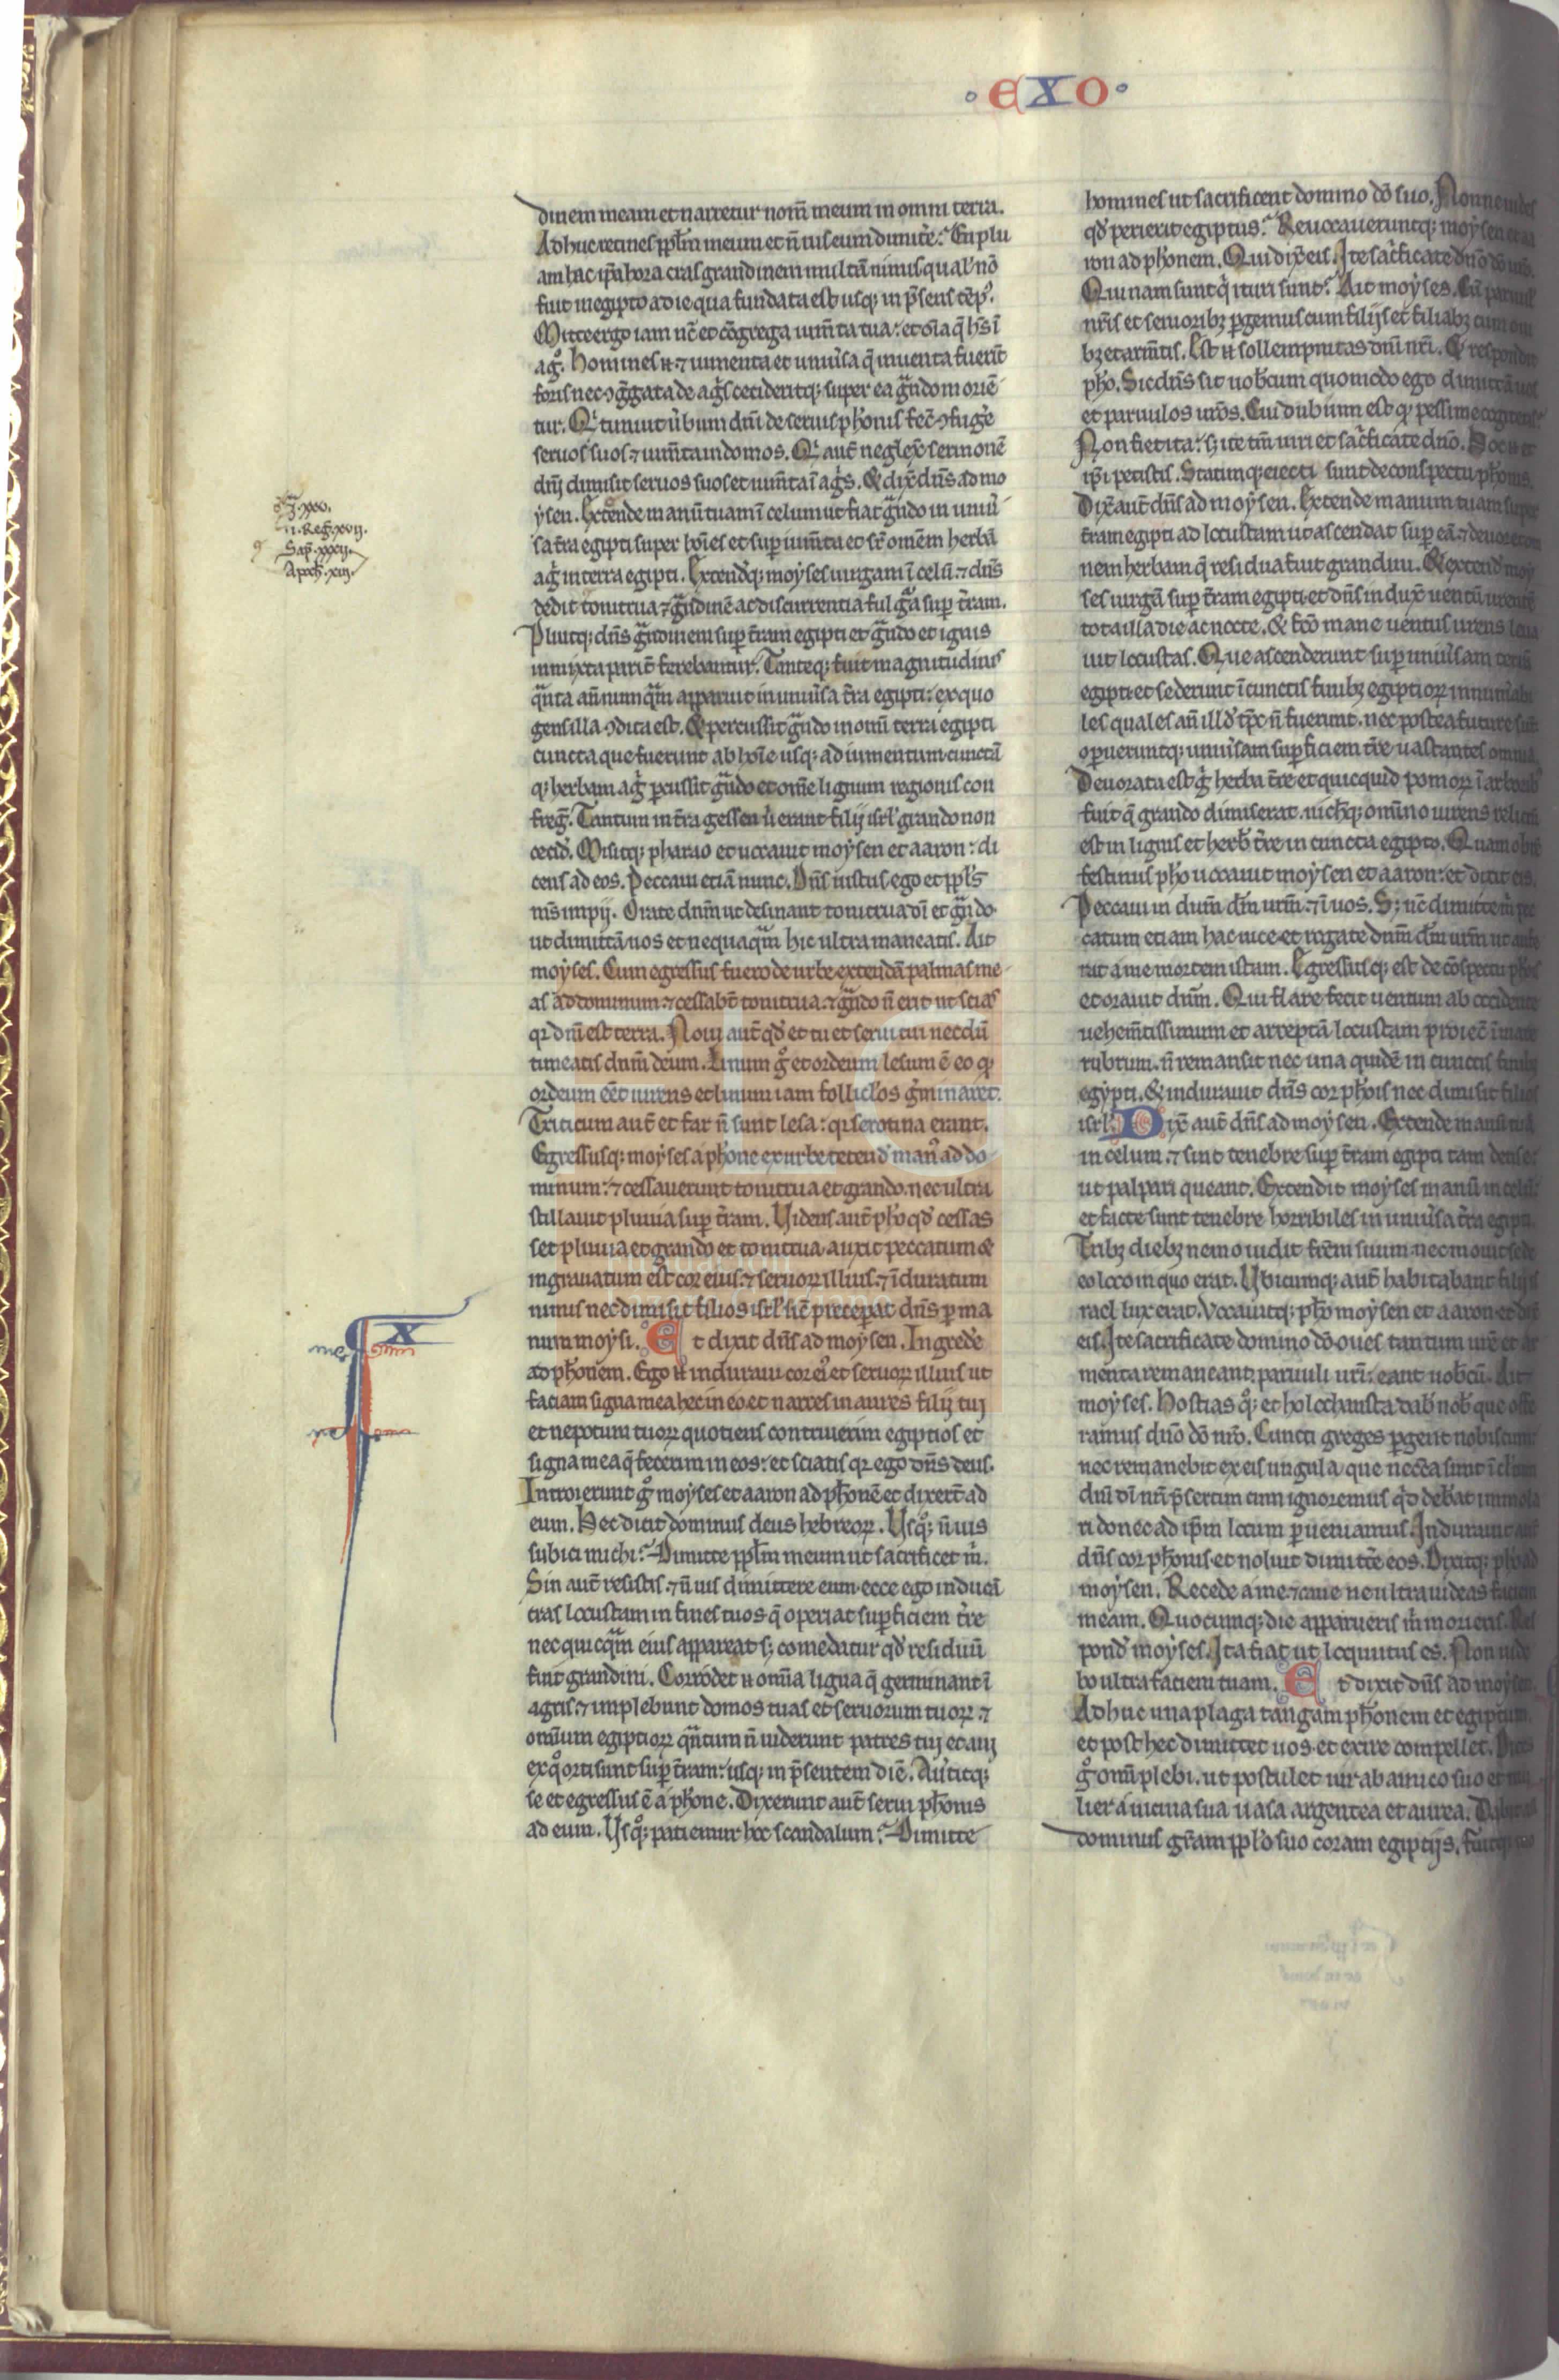 EXO
dinem meam et narretur nom̄ meum in omni terra.
Adhuc retines pp̄lm meum et n̄ uis eum dimitt'e? En plu
am hac ip̄a hora cras grandinem multā nimis qual' nō
fuit in egipto a die qua fundata est usq; in p̄sens tēp'.
Mitte ergo iam nc̄ et cōgrega ium̄ta tua: et oīa q̄ hēs ī
ag°. Homines n̄. ⁊ iumenta et uniu'sa q̄ inuenta fuerīt
foris nec ꝯg̃gata de ag̃s cecideritq; super ea g̃ndo moriē
tur. Q¹ timuit ũbum dn̄i de seruis ph̄onis fec̄ ꝯfug'e
seruos suos ⁊ ium̄ta in domos. Q¹ aut̄ neglex̄ sermonē
dn̄i dimisit seruos suos et ium̄ta ī ag̃s. Et dix̄ dn̄s ad mo
ysen. Extende manū tuam ī celum ut fiat g̃ndo in uniu'
sa t̄ra egipti super hoīes et sup̱ ium̄ta et sr̄ omēm herbā
ag̃ in terra egipti. Extend'q; moyses uirgam ī celū. ⁊ dn̄s
dedit tonitrua ⁊ g̃ndinē ac discurrentia fulg̃a sup̱ t̄ram.
Pluitq; dn̄s g̃ndinem sup̱ t̄ram egipti et g̃ndo et ignis
inmixta parit̄ ferebantur. Tanteq; fuit magnitudinis
q̃nta an̄ numq̃m apparuit in uniu'sa t̄ra egipti: ex quo
gens illa ꝯdita est. Et percussit g̃ndo in omī terra egipti
cuncta que fuerunt ab hoīe usq; ad iumentum cunctā
q; herbam ag̃ p̱cussit g̃ndo et om̄e lignum regionis con
freg̃. Tantum in t̄ra gessen u' erant filij isrl' grando non
cecid'. Misitq; pharao et uocauit moysen et aaron: di
cens ad eos. Peccaui etiā nunc. Dn̄s iustus ego et pp̄ls
m̄s impij. Orate dn̄m ut desinant tonitrua dī et g̃ndo
ut dimittā uos et nequaq̃m hic ultra maneatis. Ait
moyses. Cum egressus fuero de urbe extendā palmas me
as ad dominum ⁊ cessab̄t tonitrua. ⁊ g̃ndo n̄ erit ut scias
qꝛ dn̄i est terra. Noui aut̄ qd̄ et tu et serui tui necdū
timeatis dnm̄ deum. Linum g° et ordeum lesum ē eo qꝛ
ordeum eēt uirens et linum iam follicl'os g̃minaret.
Triticum aut̄ et far n̄ sunt lesa: qꝛ serotina erant.
Egressusq; moyses a ph̄one ex urbe tetend' man' ad do
minum: ⁊ cessauerunt tonitrua et grando. nec ultra
stillauit pluuia sup̱ t̄ram. Videns aut̄ ph̄o qd̄ cessas
set pluuia et grando et tonitrua auxit peccatum ⁊
ingrauatum est cor eius. ⁊ seruoꝝ illius. ⁊ īduratum
nimis nec dimisit filios isrl' sic̄ precep̱at dn̄s p̱ ma
num moysi. Et dixit dn̄s ad moysen. Ingred'e
ad ph̄onem. Ego n̄ induraui cor ei' et seruoꝝ illius ut
faciam signa mea hec in eo. et narres in aures filij tui
et nepotum tuoꝝ quotiens contriuerim egiptios et
signa mea q̄ fecerim in eos: et sciatis qꝛ ego dn̄s deus.
Introierunt g° moyses et aaron ad ph̄onē et dixert̄ ad
eum. Hec dicit dominus deus hebreoꝝ. Usq°; n̄ uis
subici michi? Dimitte pp̄lm meum ut sacrificet m̄.
Sin aut̄ resistis. ⁊ n̄ uis dimittere eum. ecce ego inducā
cras locustam in fines tuos q̄ operiat sup̱ficiem t̄re
nec quicq̃m eius appareat s; comedatur qd̄ residuū
fuit grandini. Corrodet n̄ omīa ligna q̄ germinant ī
agris. ⁊ implebunt domos tuas et seruorum tuoꝝ. ⁊
omīum egiptioꝝ q̃ntum n̄ uiderunt patres tui et aui
ex q° orti sunt sup̱ t̄ram: usq; in p̄sentem diē. Au'titq;
se et egressus ē a ph̄one. Dixerunt aut̄ serui ph̄onis
ad eum. Usq°; patiemur hoc scandalum? Dimitte
homines ut sacrificent domino dō suo. Nonne uides
qd̄ perierit egiptus? Reuocaueruntq; moysen et aa
ron ad ph̄onem. Qui dix̄ eis. Ite sac̃ficate dn̄o dō ur̄o.
Quinam sunt q̄ ituri sunt? Ait moyses. Cū paruul'
nr̄is et senioribꝫ p̱gemus cum filijs et filiabꝫ cum oui
bꝫ et arm̄tis. Est n̄ sollempnitas dn̄i nr̄i. Et respondit
ph̄o. Sic dn̄s sit uob̄cum quomodo ego dimittā uos
et paruulos ur̄os. Cui dubium est qꝛ pessime cogitetis?
Non fiet ita: s; ite tm̄ uiri et sac̃ficate dn̄o. Hoc n̄ et
ip̄i petistis. Statimq; eiecti sunt de conspectu ph̄onis.
Dix̄ aut̄ dn̄s ad moysen. Extende manum tuam super
t̄ram egipti ad locustam ut ascendat sup̱ eā. ⁊ deuoret om
nem herbam q̄ residua fuit grandini. Et extend' moy
ses uirgā sup̱ t̄ram egipti. et dn̄s indux̄ uentū urentē
tota illa die ac nocte. Et fc̄o mane uentus urens leua
uit locustas. Que ascenderunt sup̱ uniu'sam terrā
egipti. et sederunt ī cunctis finibꝫ egiptioꝝ innum'abi
les quales an̄ illd' tp̄c n̄ fuerunt. nec postea future sūt
operueruntq; uniu'sam sup̱ficiem t̄re uastantes omnia.
Deuorata est g° herba t̄re et quicquid pomoꝝ ī arborib'
fuit q̄ grando dimiserat. nichq; omīno uirens relictū
est in lignis et herb' t̄re in cuncta egipto. Quam obrē
festinus ph̄o uocauit moysen et aaron: et dicit eis.
Peccaui in dnm̄ dm̄ urm̄. ⁊ ī uos. S; nc̄ dimitte m̄ pec
catum etiam hac uice. et rogate dnm̄ dm̄ urm̄ ut aufe
rat a me mortem istam. Egressusq; est de cōspectu ph̄ois
et orauit dnm̄. Qui flare fecit uentum ab occidente
uehem̄tissimum et arreptā locustam proiec̄ ī mare
rubrum. n̄ remansit nec una quidē in cunctis finibꝫ
egypti. Et indurauit dn̄s cor ph̄ois nec dimisit filios
isrl'. Dix̄ aut̄ dn̄s ad moysen. Extende manū tuā
in celum. ⁊ sint tenebre sup̱ t̄ram egipti tam dense:
ut palpari queant. Extendit moyses manū in celū:
et facte sunt tenebre horribiles in uniu'sa t̄ra egipti.
Tribꝫ diebꝫ nemo uidit fr̄em suum. nec mouit se de
eo loco in quo erat. Ubicumq; aut̄ habitabant filij is
rael lux erat. Vocauitq; ph̄o moysen et aaron et dix̄
eis. Ite sacrificate domino dō. oues tantum ur̄e et ar
menta remaneant. paruuli ur̄i: eant uob̄cū. Ait
moyses. Hostias q°; et holochausta dab' nob' que offe
ramus dn̄o dō nr̄o. Cuncti greges p̱gent nobiscum:
nec remanebit ex eis ungula. que nec̄ea sunt ī cltum
dn̄i dī nr̄i. p̄sertim cum ignoremus qd̄ debeat immola
ri donec ad ip̄m locum p̱ueniamus. Indurauit aut̄
dn̄s cor ph̄onis. et noluit dimitt'e eos. Dixitq; ph̄o ad
moysen. Recede a me. ⁊ caue ne ultra uideas faciem
meam. Quocumq; die apparueris m̄ morieris. Res
pond' moyses. Ita fiat ut locuutus es. Non uide
bo ultra faciem tuam. Et dixit dn̄s ad moysen.
Adhuc una plaga tangam ph̄onem et egiptum.
et post hec dimittet uos. et exire compellet. Dices
g° omī plebi. ut postulet uir ab amico suo et mu
lier a uicina sua uasa argentea et aurea. Dabit aut̄
dominus gr̄am pp̄lo suo coram egiptijs. fuitq;
xxv.
ii. Reg̃. xvii.
Sap̄. xxxii.
Apoc̄. xvi.
X